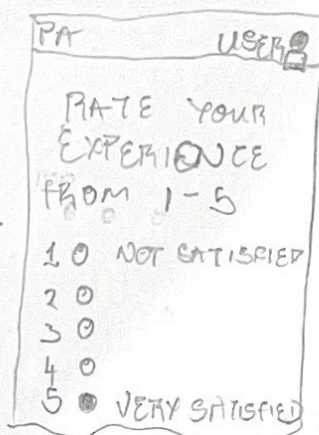 PA USER
RATE YOUR
EXPERIENCE
FROM 1-5
1 NOT SATISFIED
2
3
4
5 VERY SATISFIED